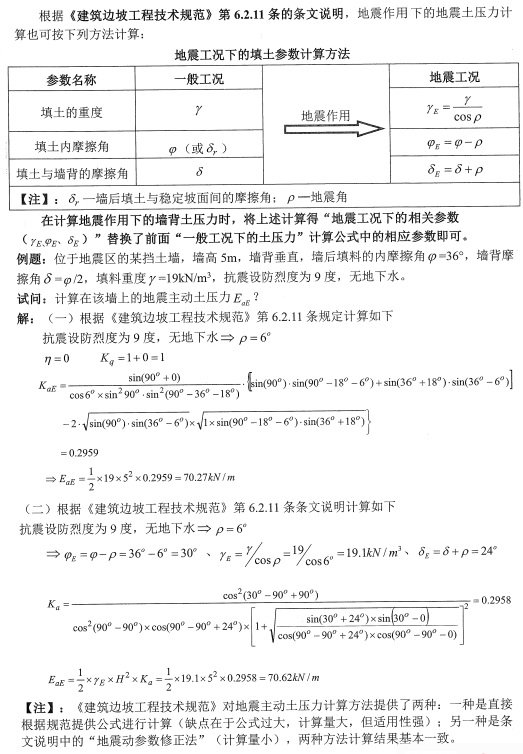 根据《建筑边坡工程技术规范》第 6.2.11 条的条文说明，地震作用下的地震土压力计
算也可按下列方法计算：
地震工况下的填土参数计算方法
参数名称 一般工况 地震工况
填土的重度 γ 地震作用 γ_E = γ / cosρ
填土内摩擦角 φ（或 δ_r） φ_E = φ − ρ
填土与墙背的摩擦角 δ δ_E = δ + ρ
【注】：δ_r —墙后填土与稳定坡面间的摩擦角；ρ —地震角
在计算地震作用下的墙背土压力时，将上述计算得“地震工况下的相关参数
（γ_E、φ_E、δ_E）”替换了前面“一般工况下的土压力”计算公式中的相应参数即可。
例题：位于地震区的某挡土墙，墙高 5m，墙背垂直，墙后填料的内摩擦角 φ=36°，墙背摩
擦角 δ=φ/2，填料重度 γ=19kN/m³，抗震设防烈度为 9 度，无地下水。
试问：计算在该墙上的地震主动土压力 E_aE？
解：（一）根据《建筑边坡工程技术规范》第 6.2.11 条规定计算如下
抗震设防烈度为 9 度，无地下水⇒ ρ = 6°
η = 0 K_q = 1 + 0 = 1
K_aE = sin(90° + 0) / cos6° × sin²90° · sin²(90° − 36° − 18°) · {[sin(90°) · sin(90° − 18° − 6°) + sin(36° + 18°) · sin(36° − 6°)]
− 2 · √sin(90°) · sin(36° − 6°) × √1 × sin(90° − 18° − 6°) · sin(36° + 18°)}
= 0.2959
⇒ E_aE = 1/2 × 19 × 5² × 0.2959 = 70.27kN / m
（二）根据《建筑边坡工程技术规范》第 6.2.11 条条文说明计算如下
抗震设防烈度为 9 度，无地下水⇒ ρ = 6°
⇒ φ_E = φ − ρ = 36° − 6° = 30° 、 γ_E = γ/cosρ = 19/cos6° = 19.1kN / m³、 δ_E = δ + ρ = 24°
K_a = cos²(30° − 90° + 90°) / cos²(90° − 90°) × cos(90° − 90° + 24°) × [1 + √(sin(30° + 24°) × sin(30° − 0) / cos(90° − 90° + 24°) × cos(90° − 90° − 0))]² = 0.2958
E_aE = 1/2 × γ_E × H² × K_a = 1/2 × 19.1 × 5² × 0.2958 = 70.62kN / m
【注】：《建筑边坡工程技术规范》对地震主动土压力计算方法提供了两种：一种是直接
根据规范提供公式进行计算（缺点在于公式过大，计算量大，但适用性强）；另一种是条
文说明中的“地震动参数修正法”（计算量小），两种方法计算结果基本一致。